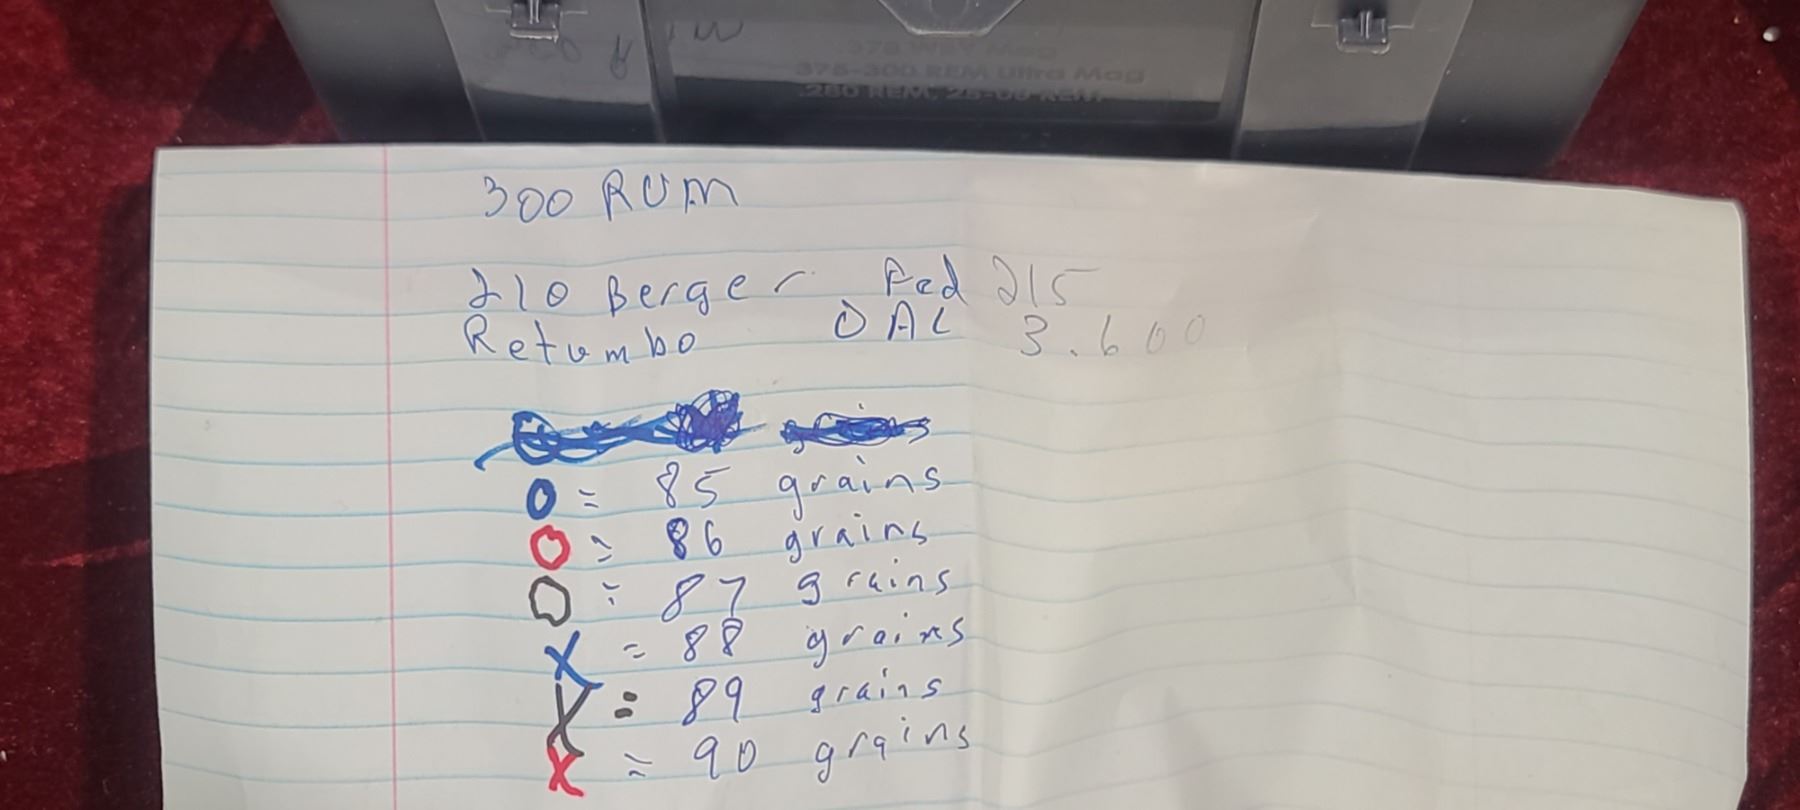 .378 WBY Mag
375-300 REM Ultra Mag
.280 REM, 25-06 REM
300 RUM
210 Berger Fed 215
Retumbo OAL 3.600
O = 85 grains
O = 86 grains
O = 87 grains
X = 88 grains
X = 89 grains
X = 90 grains